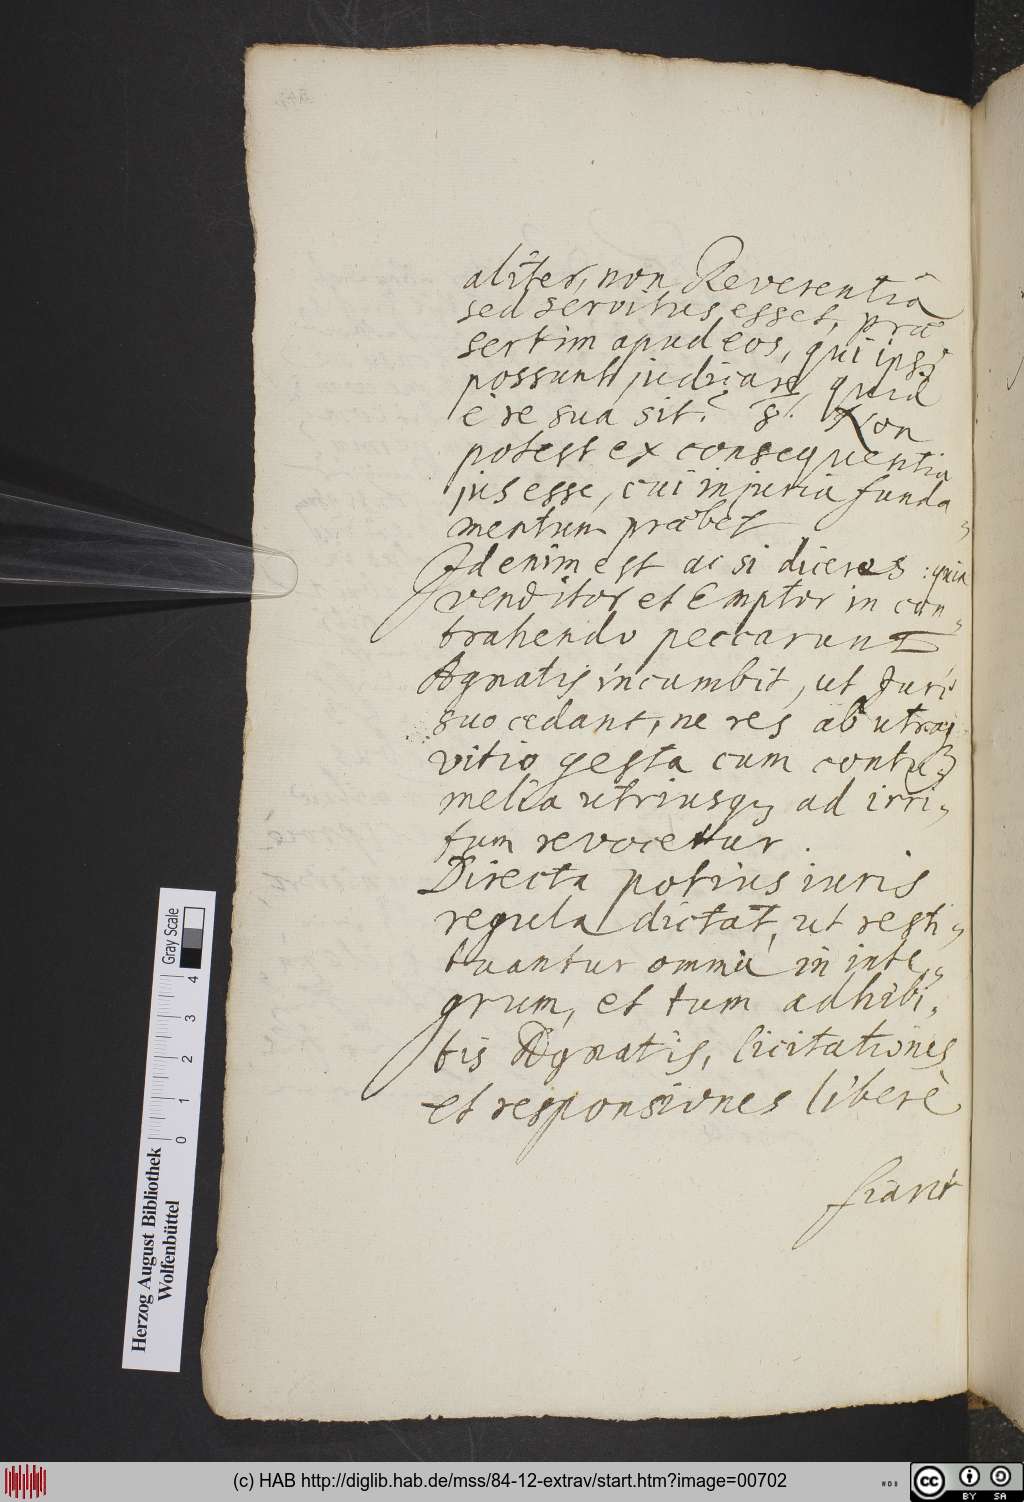 aliter, non Reverentia
sed servitus esset, præ
sertim apud eos, qui ipsi
possunt judicare, quid
è re sua sit? 8. Non
potest ex consequentia
jus esse, cui injuria funda„
mentum præbet
Id enim est ac si diceres : quia
venditor et Emptor in con„
trahendo peccarunt
Agnatis incumbit, ut Juri
suo cedant, ne res ab utraq
vitio gesta cum contu„
melia utriusq, ad irri„
tum revocetur.
Directa potius iuris
regula dictat, ut resti„
tuantur omnia in inte„
grum, et tum adhibi„
tis Agnatis, licitationes
et responsiones liberè
fiant
Herzog August Bibliothek
Wolfenbüttel
0 1 2 3 4
Gray Scale
(c) HAB http://diglib.hab.de/mss/84-12-extrav/start.htm?image=00702
cc BY SA